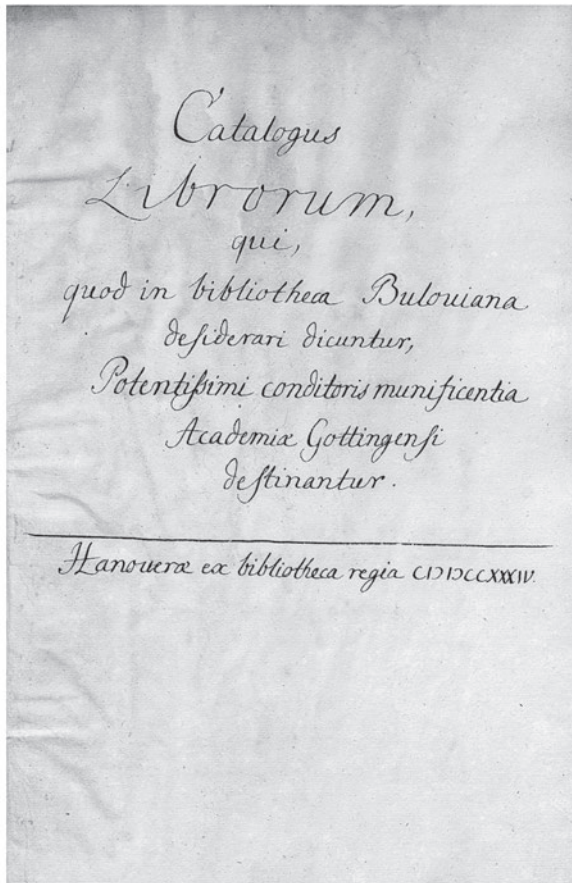 Catalogus
Librorum,
qui,
quod in bibliotheca Bulouiana
desiderari dicuntur,
Potentissimi conditoris munificentia
Academiæ Gottingensi
destinantur.
Hanoueræ ex bibliotheca regia CIƆIƆCCXXXIV.